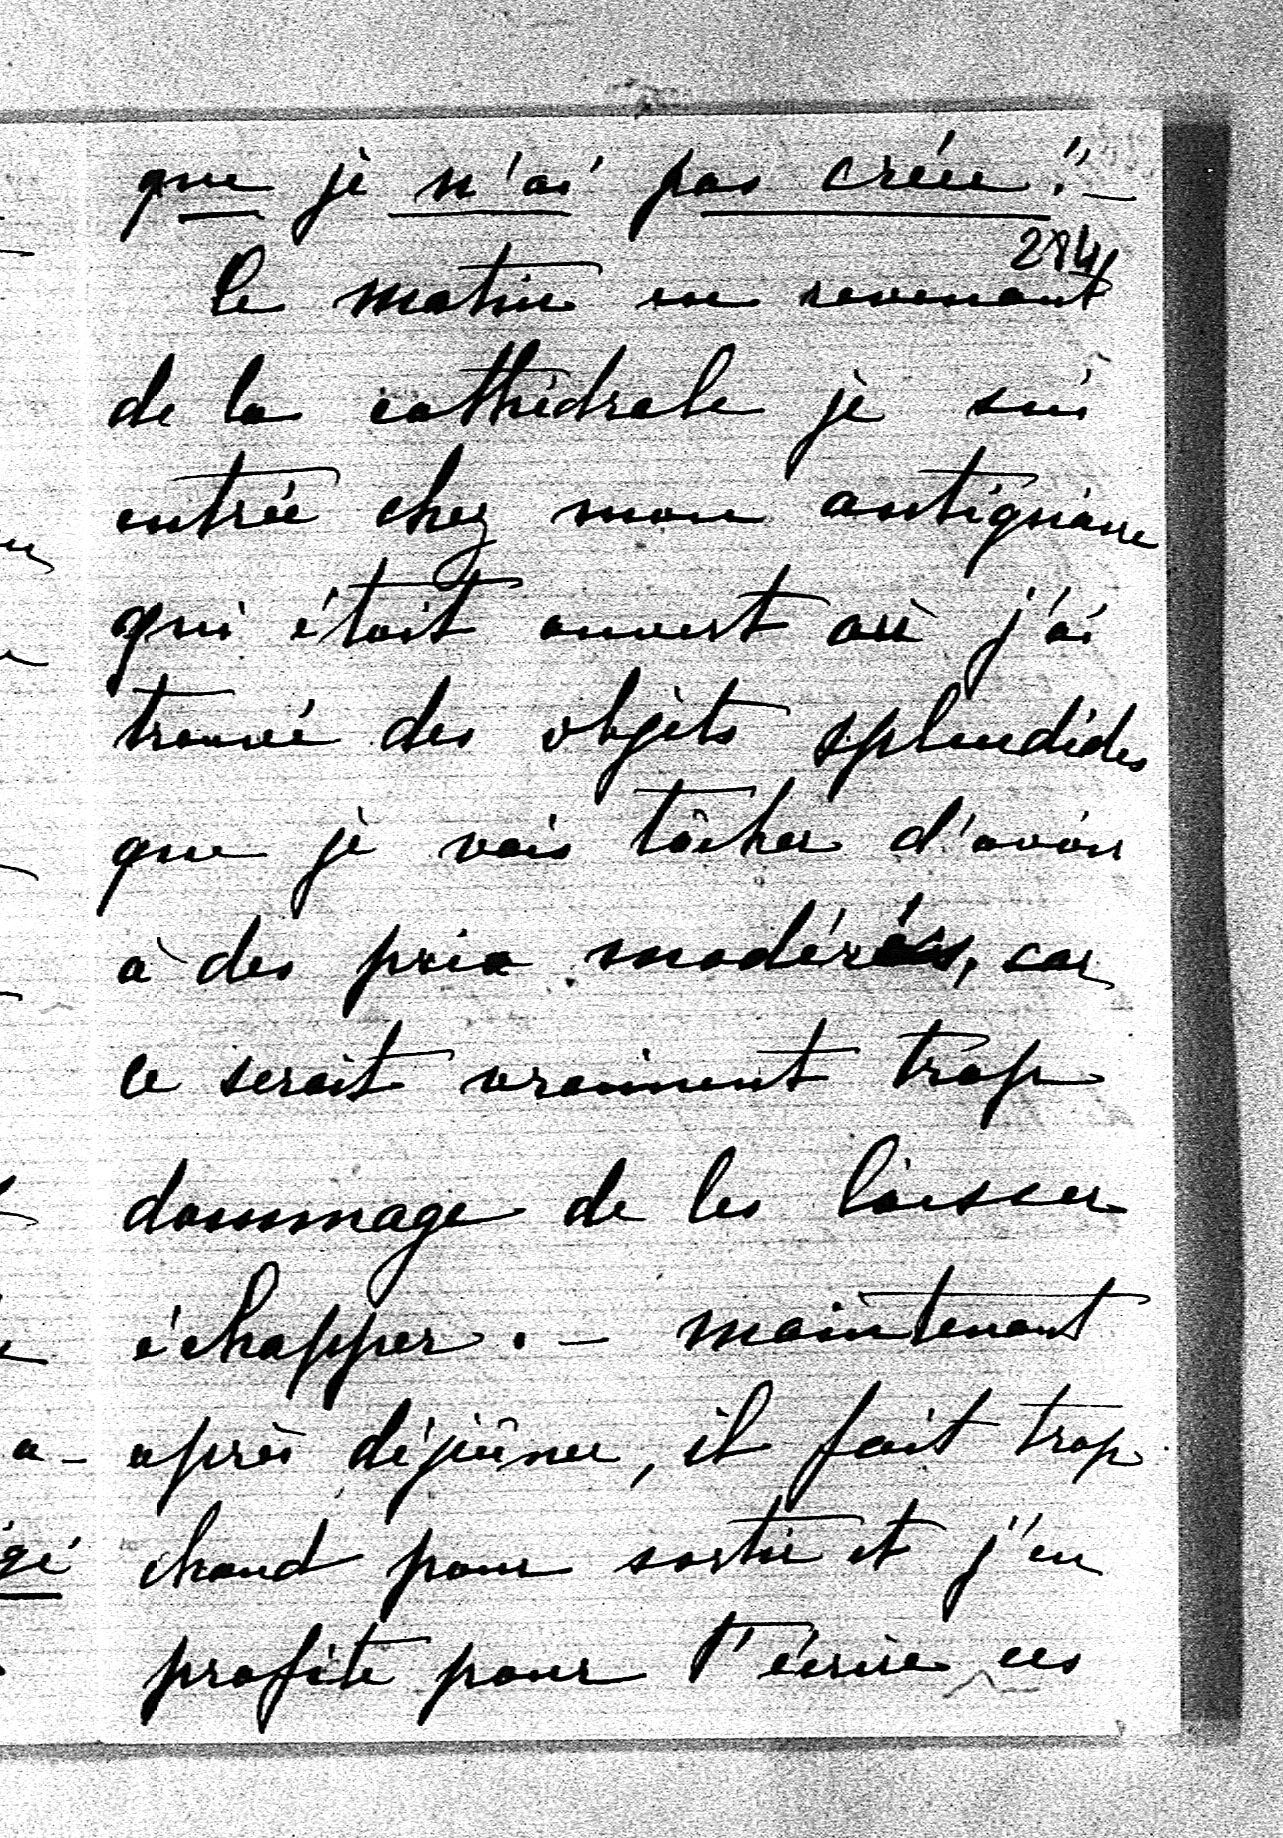 que je n'ai pas créée!" —
284
Ce matin en revenant
de la cathédrale je suis
entrée chez mon antiquaire
qui était ouvert où j'ai
trouvé des objets splendides
que je vais tâcher d'avoir
à des prix modérés, car
ce serait vraiment trop
dommage de les laisser
échapper. — maintenant
après déjeûner, il fait trop
chaud pour sortir et j'en
profite pour t'écrire ces